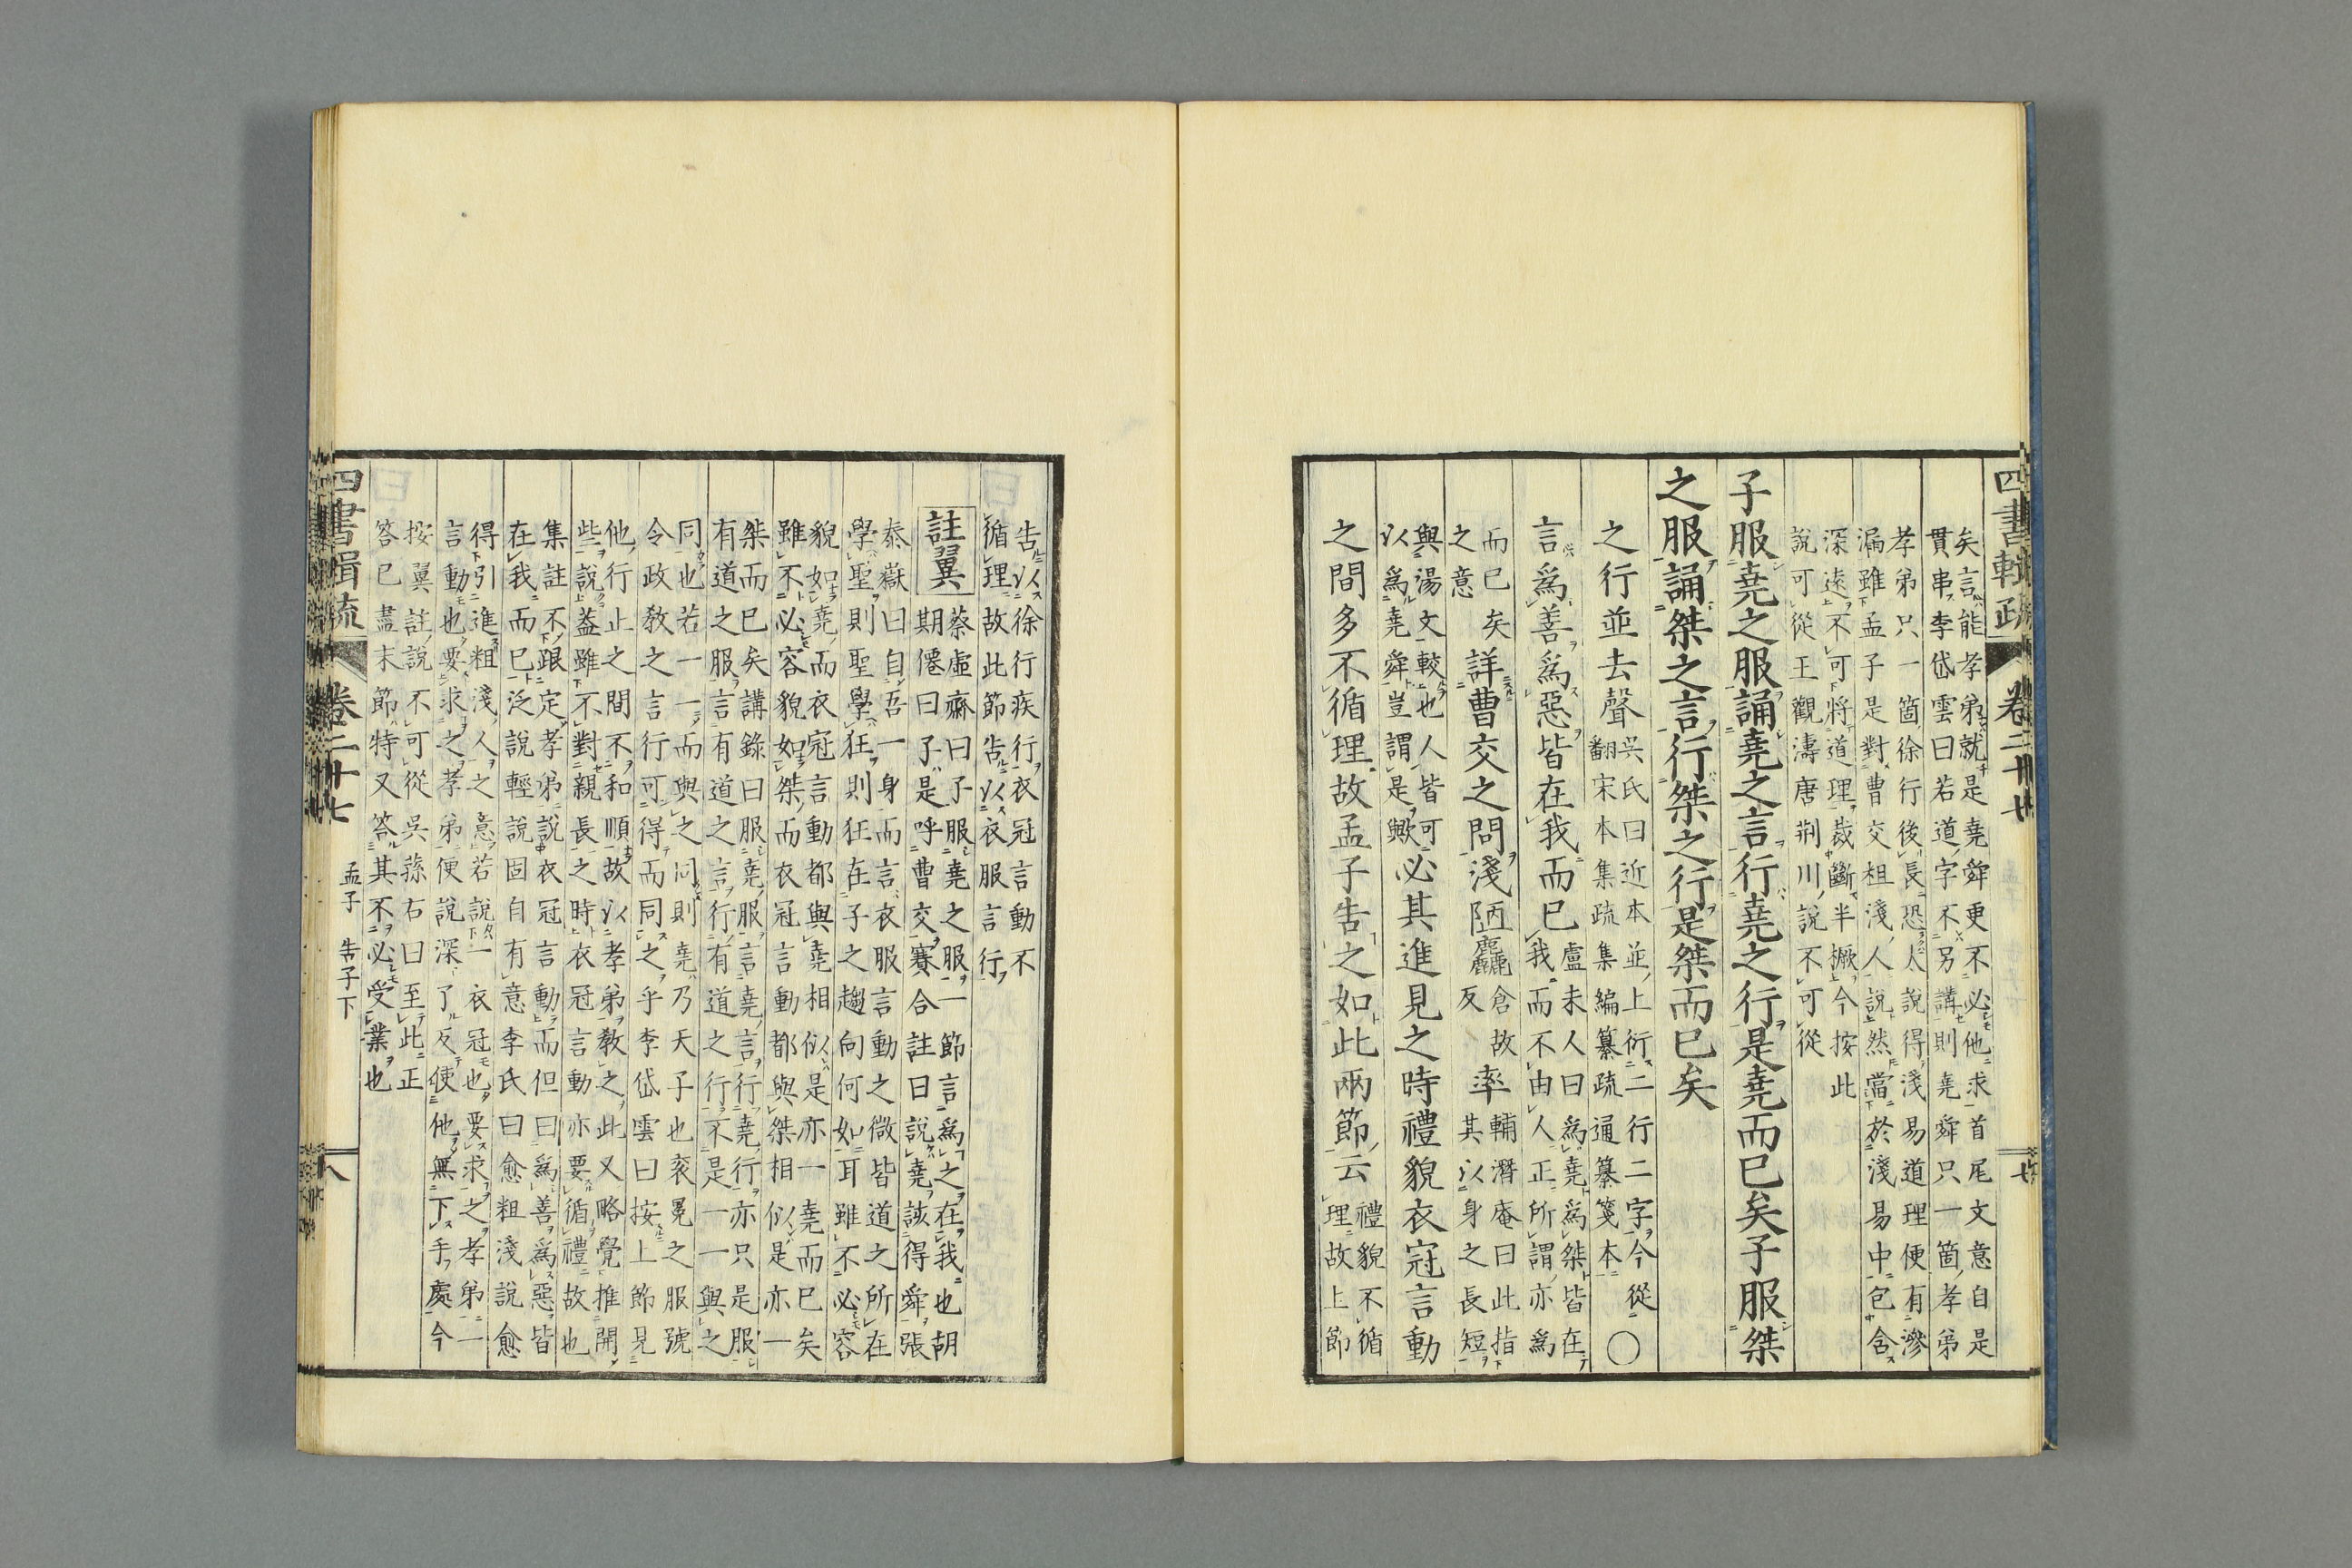 四書輯疏
卷二十七
七
矣言能孝弟就是堯舜更不必他求首尾文意自是
貫串李岱雲曰若道字不另講則堯舜只一箇孝弟
孝弟只一箇徐行後長恐太說得淺易道理便有滲
漏雖孟子是對曹交粗淺人說然當於淺易中包含
深遠不可將道理裁斷半橛今按此
說可從王觀濤唐荆川說不可從
子服堯之服誦堯之言行堯之行是堯而已矣子服桀
之服誦桀之言行桀之行是桀而已矣
之行並去聲
吳氏曰近本並上衍二行二字今從
翻宋本集疏集編纂疏通纂箋本
○
言爲善爲惡皆在我而已
盧未人曰爲堯爲桀皆在
我而不由人正所謂亦爲
而已矣
之意
詳曹交之問淺陋麤
倉故
反
率
輔潛庵曰此指
其以身之長短
與湯文較也人皆可
以爲堯舜豈謂是歟
必其進見之時禮貌衣冠言動
之間多不循理故孟子告之如此兩節云
禮貌不循
理故上節
告以徐行疾行衣冠言動不
循理故此節告以衣服言行
註翼
蔡虛齋曰子服堯之服一節言爲之在我也胡
期僊曰子是呼曹交賽合註曰說堯該得舜張
泰嶽曰自吾一身而言衣服言動之微皆道之所在
學聖則聖學狂則狂在子之趨向何如耳雖不必容
貌如堯而衣冠言動都與堯相似是亦一堯而已矣
雖不必容貌如桀而衣冠言動都與桀相似是亦一
桀而已矣講錄曰服堯服言堯言行堯行亦只是服
有道之服言有道之言行有道之行不是一一與之
同也若一一而與之同則堯乃天子也衮冕之服號
令政教之言行可得而同之乎李岱雲曰按上節見
他行止之間不和順故以孝弟教之此又略覺推開
些說蓋雖不對親長之時衣冠言動亦要循禮故也
集註不跟定孝弟說衣冠言動而但曰爲善爲惡皆
在我而已泛說輕說固自有意李氏曰愈粗淺說愈
得引進粗淺人之意若說一衣冠也要求之孝弟一
言動也要求之孝弟便說深了反使他無下手處今
按翼註說不可從吳蓀右曰至此正
答已盡末節特又答其不必受業也
四書輯疏
卷二十七
孟子 告子下
八